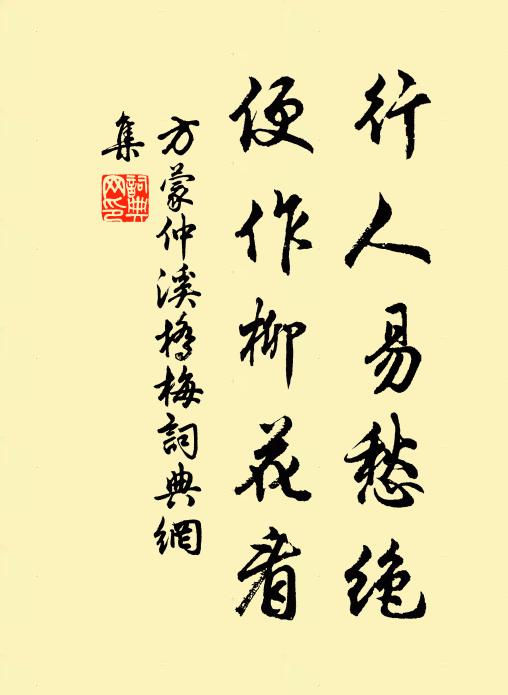 行人易愁绝
便作柳花看
方蒙仲溪橋梅詞典網
集
詞典
网印